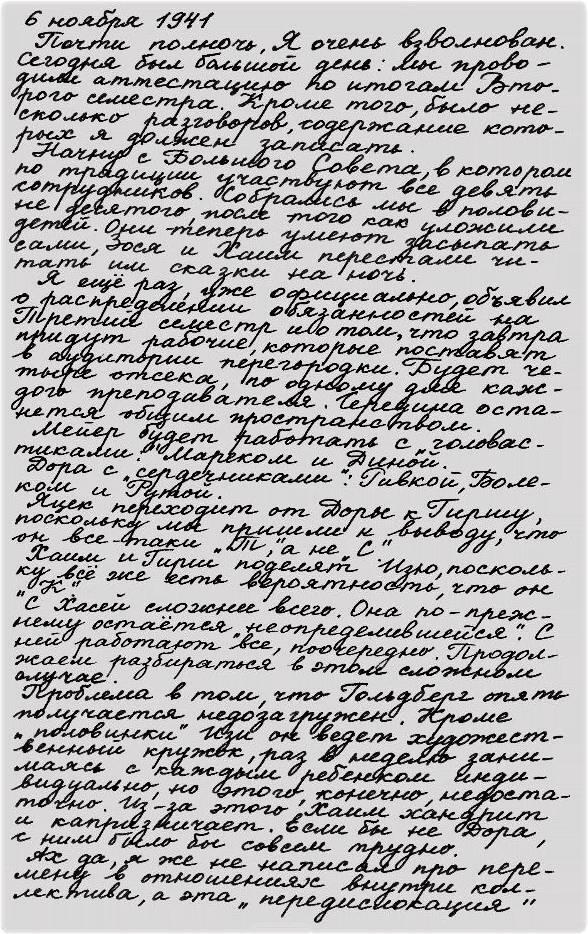 6 ноября 1941
Почти полночь, Я очень взволнован.
Сегодня был большой день: мы прово-
дили аттестацию по итогам Вто-
рого семестра. Кроме того, было не-
сколько разговоров, содержание кото-
рых я должен записать.
Начну с Большого Совета, в котором
по традиции участвуют все девять
сотрудников. Собрались мы в полови-
не десятого, после того как уложили
детей. Они теперь умеют засыпать
сами, Зося и Хаим перестали чи-
тать им сказки на ночь.
Я ещё раз, уже официально, объявил
о распределении обязанностей на
Третий семестр и о том, что завтра
придут рабочие, которые поставят
в аудитории перегородки. Будет че-
тыре отсека, по одному для каж-
дого преподавателя. Середина оста-
нется общим пространством.
Мейер будет работать с „головас-
тиками": Мареком и Диной.
Дора с „сердечниками": Ривкой, Боле-
ком и Рутой.
Яцек переходит от Доры к Гиршу,
поскольку мы пришли к выводу, что
он все-таки „Т", а не „С".
Хаим и Гирш поделят Изю, посколь-
ку всё же есть вероятность, что он
„К".
С Хасей сложнее всего. Она по-преж-
нему остаётся „неопределившейся". С
ней работают все, поочередно. Продол-
жаем разбираться в этом сложном
случае.
Проблема в том, что Гольдберг опять
получается недозагружен. Кроме
„половинки" Изи он ведет художест-
венный кружок, раз в неделю зани-
маясь с каждым ребенком инди-
видуально, но этого, конечно, недоста-
точно. Из-за этого Хаим хандрит
и капризничает. Если бы не Дора,
с ним было бы совсем трудно.
Ах да, я же не написал про пере-
мену в отношениях внутри кол-
лектива, а эта „передислокация"